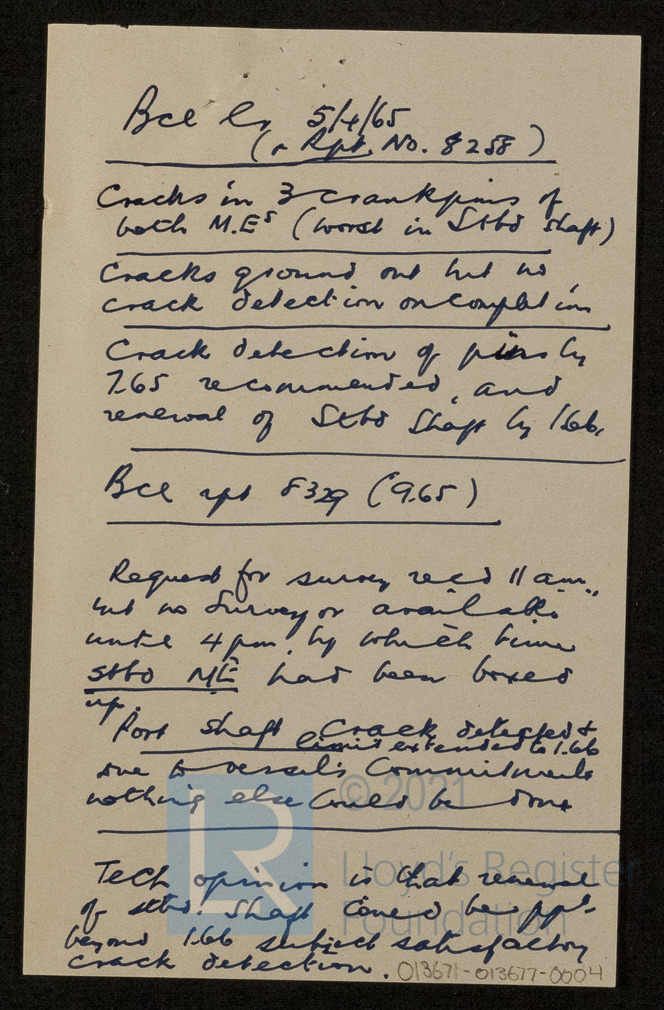 Bcl 5/4/65
(& Rpt. No. 8258)
Cracks in 3 crankpins of
both M.Es (worst in Stbd shaft)
Cracks ground out but no
crack detection on completion
Crack detection of pins by
7.65 recommended, and
renewal of Stbd Shaft by 1.66.
Bcl rpt 8329 (9.65)
Request for survey recd 11 am.,
but no Surveyor available
until 4 pm. by which time
stbd ME had been boxed
up.
Port shaft crack detected &
limit extended to 1.66
due to vessel's Commitments
nothing else could be done
Tech opinion is that renewal
of stbd. Shaft could be ppd
beyond 1.66 subject satisfactory
crack detection.
013671-013677-0004
© 2021
LR
Lloyd's Register
Foundation